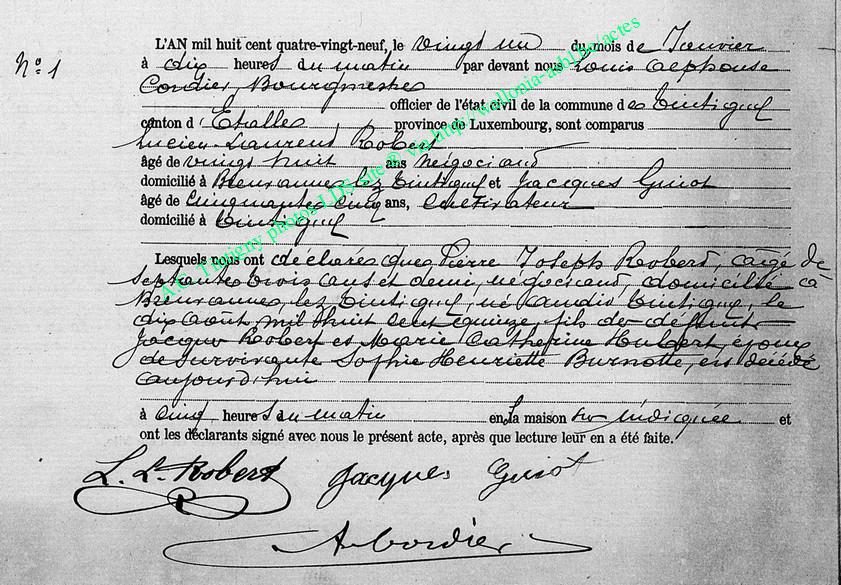 N° 1
L'AN mil huit cent quatre-vingt-neuf, le vingt un du mois de Janvier
à dix heures du matin par devant nous Louis Alphonse
Cordier, Bourgmestre
officier de l'état civil de la commune de Tintigny
canton d'Etalle, province de Luxembourg, sont comparus
Lucien Laurent Robert
âgé de vingt huit ans négociant
domicilié à Breuvanne lez Tintigny et Jacques Guiot
âgé de Cinquante cinq ans, Cultivateur
domicilié à Tintigny
Lesquels nous ont déclaré que Pierre Joseph Robert, âgé de
Septante trois ans et demi, négociant, domicilié à
Breuvanne, lez Tintigny, né audit Tintigny, le
dix Août mil huit cent quinze, fils de défunts
Jacques Robert et Marie Catherine Hubert, époux
de survivante Sophie Henriette Burnotte, est décédé
aujourd'hui
à cinq heures du matin en la maison sus indiquée et
ont les déclarants signé avec nous le présent acte, après que lecture leur en a été faite.
L. L. Robert Jacques Guiot
A Cordier
A.G. Tintigny photos LDS site ® via http://wallonia-asbl.be/actes